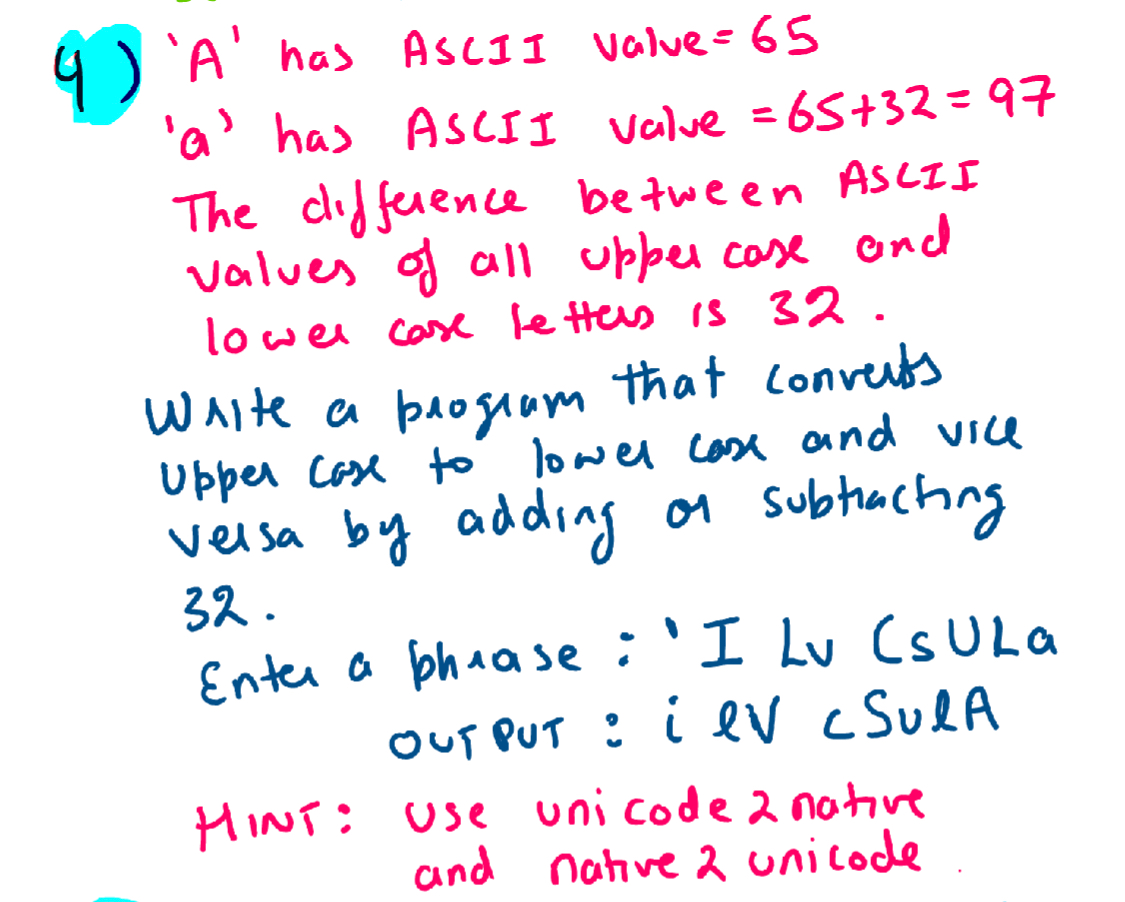 9) 'A' has ASCII value = 65
'a' has ASCII value = 65+32 = 97
The difference between ASCII
values of all upper case and
lower case letters is 32.
Write a program that converts
Upper case to lower case and vice
versa by adding or subtracting
32.
Enter a phrase : 'I Lv CsULa
OUTPUT : i lV cSulA
HINT: Use unicode2native
and native2unicode.